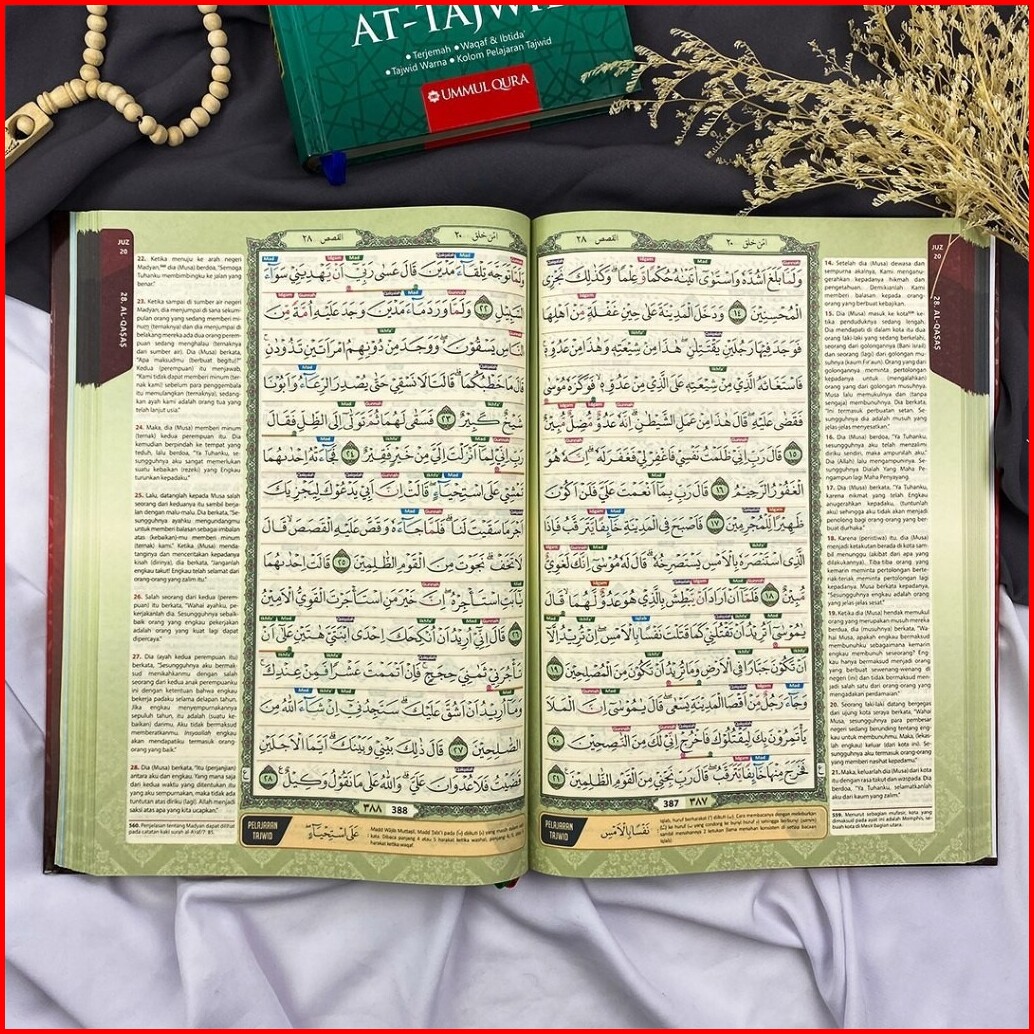 AT-TAJWID
• Terjemah • Waqaf & Ibtida'
• Tajwid Warna • Kolom Pelajaran Tajwid
UMMUL QURA
JUZ
20
28. AL-QASAS
القصص ٢٨
امّن خلق ٢٠
وَلَمَّا بَلَغَ اَشُدَّهٗ وَاسْتَوٰٓى اٰتَيْنٰهُ حُكْمًا وَّعِلْمًاۗ وَكَذٰلِكَ نَجْزِى
الْمُحْسِنِيْنَ ١٤ وَدَخَلَ الْمَدِيْنَةَ عَلٰى حِيْنِ غَفْلَةٍ مِّنْ اَهْلِهَا
فَوَجَدَ فِيْهَا رَجُلَيْنِ يَقْتَتِلٰنِۖ هٰذَا مِنْ شِيْعَتِهٖ وَهٰذَا مِنْ عَدُوِّهٖۚ
فَاسْتَغَاثَهُ الَّذِيْ مِنْ شِيْعَتِهٖ عَلَى الَّذِيْ مِنْ عَدُوِّهٖۙ فَوَكَزَهٗ مُوْسٰى
فَقَضٰى عَلَيْهِۖ قَالَ هٰذَا مِنْ عَمَلِ الشَّيْطٰنِۗ اِنَّهٗ عَدُوٌّ مُّضِلٌّ مُّبِيْنٌ
١٥ قَالَ رَبِّ اِنِّيْ ظَلَمْتُ نَفْسِيْ فَاغْفِرْ لِيْ فَغَفَرَ لَهٗۗ اِنَّهٗ هُوَ
الْغَفُوْرُ الرَّحِيْمُ ١٦ قَالَ رَبِّ بِمَآ اَنْعَمْتَ عَلَيَّ فَلَنْ اَكُوْنَ
ظَهِيْرًا لِّلْمُجْرِمِيْنَ ١٧ فَاَصْبَحَ فِى الْمَدِيْنَةِ خَاۤىِٕفًا يَّتَرَقَّبُ فَاِذَا
الَّذِى اسْتَنْصَرَهٗ بِالْاَمْسِ يَسْتَصْرِخُهٗۗ قَالَ لَهٗ مُوْسٰٓى اِنَّكَ لَغَوِيٌّ
مُّبِيْنٌ ١٨ فَلَمَّآ اَنْ اَرَادَ اَنْ يَّبْطِشَ بِالَّذِيْ هُوَ عَدُوٌّ لَّهُمَاۙ قَالَ
يٰمُوْسٰٓى اَتُرِيْدُ اَنْ تَقْتُلَنِيْ كَمَا قَتَلْتَ نَفْسًاۢ بِالْاَمْسِۖ اِنْ تُرِيْدُ اِلَّآ
اَنْ تَكُوْنَ جَبَّارًا فِى الْاَرْضِ وَمَا تُرِيْدُ اَنْ تَكُوْنَ مِنَ الْمُصْلِحِيْنَ ١٩
وَجَاۤءَ رَجُلٌ مِّنْ اَقْصَا الْمَدِيْنَةِ يَسْعٰىۖ قَالَ يٰمُوْسٰٓى اِنَّ الْمَلَاَ
يَأْتَمِرُوْنَ بِكَ لِيَقْتُلُوْكَ فَاخْرُجْ اِنِّيْ لَكَ مِنَ النّٰصِحِيْنَ ٢٠
فَخَرَجَ مِنْهَا خَاۤىِٕفًا يَّتَرَقَّبُۖ قَالَ رَبِّ نَجِّنِيْ مِنَ الْقَوْمِ الظّٰلِمِيْنَ ٢١
387 ٣٨٧
PELAJARAN
TAJWID
نَفْسًاۢ بِالْاَمْسِ
14. Setelah dia (Musa) dewasa dan
sempurna akalnya, Kami menganu-
gerahkan kepadanya hikmah dan
pengetahuan. Demikianlah Kami
memberi balasan kepada orang-
orang yang berbuat kebajikan.
15. Dia (Musa) masuk ke kota ke-
tika penduduknya sedang lengah.
Dia mendapati di dalam kota itu dua
orang laki-laki yang sedang berkelahi,
seorang dari golongannya (Bani Israil)
dan seorang (lagi) dari golongan mu-
suhnya (kaum Fir'aun). Orang yang dari
golongannya meminta pertolongan
kepadanya untuk (mengalahkan)
orang yang dari golongan musuhnya.
Musa lalu memukulnya dan (tanpa
sengaja) membunuhnya. Dia berkata,
"Ini termasuk perbuatan setan. Se-
sungguhnya dia adalah musuh yang
jelas-jelas menyesatkan."
16. Dia (Musa) berdoa, "Ya Tuhanku,
sesungguhnya aku telah menzalimi
diriku sendiri, maka ampunilah aku."
Dia (Allah) lalu mengampuninya. Se-
sungguhnya Dialah Yang Maha Pe-
ngampun lagi Maha Penyayang.
17. Dia (Musa) berkata, "Ya Tuhanku,
karena nikmat yang telah Engkau
anugerahkan kepadaku, (teguhkanlah
aku) sehingga aku tidak akan menjadi
penolong bagi orang-orang yang ber-
buat durhaka."
18. Karena (peristiwa) itu, dia (Musa)
menjadi ketakutan berada di kota sam-
bil menunggu (akibat dari apa yang
dilakukannya). Tiba-tiba orang yang
kemarin meminta pertolongan berte-
riak-teriak meminta pertolongan lagi
kepadanya. Musa berkata kepadanya,
"Sesungguhnya engkau adalah orang
yang jelas-jelas sesat."
19. Ketika dia (Musa) hendak memukul
orang yang merupakan musuh mereka
berdua, dia (musuhnya) berkata, "Wa-
hai Musa, apakah engkau bermaksud
membunuhku sebagaimana kemarin
engkau membunuh seseorang? Eng-
kau hanya bermaksud menjadi orang
yang berbuat sewenang-wenang di
negeri (ini) dan tidak bermaksud men-
jadi salah satu dari orang-orang yang
mengadakan perdamaian."
20. Seorang laki-laki datang bergegas
dari ujung kota seraya berkata, "Wahai
Musa, sesungguhnya para pembesar
negeri sedang berunding tentang eng-
kau untuk membunuhmu. Maka, (lekas-
lekas) keluarlah (dari kota ini). Se-
sungguhnya aku termasuk orang-orang
yang memberi nasihat kepadamu."
21. Maka, keluarlah dia (Musa) dari kota
itu dengan rasa takut dan waspada. Dia
berdoa, "Ya Tuhanku, selamatkanlah
aku dari kaum yang zalim."
559. Menurut sebagian mufasir, kota yang
dimaksud pada ayat ini adalah Memphis, se-
buah kota di Mesir bagian utara.
JUZ
20
28. AL-QASAS
القصص ٢٨
امّن خلق ٢٠
وَلَمَّا تَوَجَّهَ تِلْقَاۤءَ مَدْيَنَ قَالَ عَسٰى رَبِّيْٓ اَنْ يَّهْدِيَنِيْ سَوَاۤءَ
السَّبِيْلِ ٢٢ وَلَمَّا وَرَدَ مَاۤءَ مَدْيَنَ وَجَدَ عَلَيْهِ اُمَّةً مِّنَ
النَّاسِ يَسْقُوْنَ ەۖ وَوَجَدَ مِنْ دُوْنِهِمُ امْرَاَتَيْنِ تَذُوْدٰنِۚ
قَالَ مَا خَطْبُكُمَاۗ قَالَتَا لَا نَسْقِيْ حَتّٰى يُصْدِرَ الرِّعَاۤءُ وَاَبُوْنَا
شَيْخٌ كَبِيْرٌ ٢٣ فَسَقٰى لَهُمَا ثُمَّ تَوَلّٰىٓ اِلَى الظِّلِّ فَقَالَ
رَبِّ اِنِّيْ لِمَآ اَنْزَلْتَ اِلَيَّ مِنْ خَيْرٍ فَقِيْرٌ ٢٤ فَجَاۤءَتْهُ اِحْدٰىهُمَا
تَمْشِيْ عَلَى اسْتِحْيَاۤءٍۖ قَالَتْ اِنَّ اَبِيْ يَدْعُوْكَ لِيَجْزِيَكَ
اَجْرَ مَا سَقَيْتَ لَنَاۗ فَلَمَّا جَاۤءَهٗ وَقَصَّ عَلَيْهِ الْقَصَصَۙ قَالَ
لَا تَخَفْۗ نَجَوْتَ مِنَ الْقَوْمِ الظّٰلِمِيْنَ ٢٥ قَالَتْ اِحْدٰىهُمَا
يٰٓاَبَتِ اسْتَأْجِرْهُۖ اِنَّ خَيْرَ مَنِ اسْتَأْجَرْتَ الْقَوِيُّ الْاَمِيْنُ
٢٦ قَالَ اِنِّيْٓ اُرِيْدُ اَنْ اُنْكِحَكَ اِحْدَى ابْنَتَيَّ هٰتَيْنِ عَلٰٓى اَنْ
تَأْجُرَنِيْ ثَمٰنِيَ حِجَجٍۚ فَاِنْ اَتْمَمْتَ عَشْرًا فَمِنْ عِنْدِكَۚ
وَمَآ اُرِيْدُ اَنْ اَشُقَّ عَلَيْكَۗ سَتَجِدُنِيْٓ اِنْ شَاۤءَ اللّٰهُ مِنَ
الصّٰلِحِيْنَ ٢٧ قَالَ ذٰلِكَ بَيْنِيْ وَبَيْنَكَۗ اَيَّمَا الْاَجَلَيْنِ
قَضَيْتُ فَلَا عُدْوَانَ عَلَيَّۗ وَاللّٰهُ عَلٰى مَا نَقُوْلُ وَكِيْلٌ ٢٨
٣٨٨ 388
PELAJARAN
TAJWID
عَلَى اسْتِحْيَاۤءٍ
22. Ketika menuju ke arah negeri
Madyan, dia (Musa) berdoa, "Semoga
Tuhanku membimbingku ke jalan yang
benar."
23. Ketika sampai di sumber air negeri
Madyan, dia menjumpai di sana sekum-
pulan orang yang sedang memberi mi-
num (ternaknya) dan dia menjumpai di
belakang mereka ada dua orang perem-
puan sedang menghalau (ternaknya
dari sumber air). Dia (Musa) berkata,
"Apa maksudmu (berbuat begitu)?"
Kedua (perempuan) itu menjawab,
"Kami tidak dapat memberi minum (ter-
nak kami) sebelum para penggembala
itu memulangkan (ternaknya), sedang-
kan ayah kami adalah orang tua yang
telah lanjut usia."
24. Maka, dia (Musa) memberi minum
(ternak) kedua perempuan itu. Dia
kemudian berpindah ke tempat yang
teduh, lalu berdoa, "Ya Tuhanku, se-
sungguhnya aku sangat memerlukan
suatu kebaikan (rezeki) yang Engkau
turunkan kepadaku."
25. Lalu, datanglah kepada Musa salah
seorang dari keduanya itu sambil berja-
lan dengan malu-malu. Dia berkata, "Se-
sungguhnya ayahku mengundangmu
untuk memberi balasan sebagai imbalan
atas (kebaikan)-mu memberi minum
(ternak) kami." Ketika (Musa) menda-
tanginya dan menceritakan kepadanya
kisah (dirinya), dia berkata, "Janganlah
engkau takut! Engkau telah selamat dari
orang-orang yang zalim itu."
26. Salah seorang dari kedua (perem-
puan) itu berkata, "Wahai ayahku, pe-
kerjakanlah dia. Sesungguhnya sebaik-
baik orang yang engkau pekerjakan
adalah orang yang kuat lagi dapat
dipercaya."
27. Dia (ayah kedua perempuan itu)
berkata, "Sesungguhnya aku bermak-
sud menikahkanmu dengan salah
seorang dari kedua anak perempuanku
ini dengan ketentuan bahwa engkau
bekerja padaku selama delapan tahun.
Jika engkau menyempurnakannya
sepuluh tahun, itu adalah (suatu ke-
baikan) darimu. Aku tidak bermaksud
memberatkanmu. Insyaallah engkau
akan mendapatiku termasuk orang-
orang yang baik."
28. Dia (Musa) berkata, "Itu (perjanjian)
antara aku dan engkau. Yang mana saja
dari kedua waktu yang ditentukan itu
yang aku sempurnakan, maka tidak ada
tuntutan atas diriku (lagi). Allah menjadi
saksi atas apa yang kita ucapkan."
560. Penjelasan tentang Madyan dapat dilihat
pada catatan kaki surah al-A'raf/7: 85.